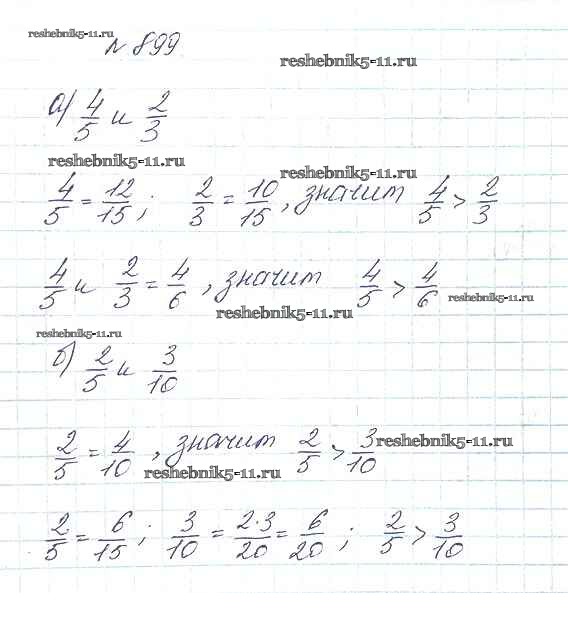 reshebnik5-11.ru
№ 899
reshebnik5-11.ru
а) 4/5 и 2/3
reshebnik5-11.ru
reshebnik5-11.ru
4/5 = 12/15; 2/3 = 10/15, значит 4/5 > 2/3
4/5 и 2/3 = 4/6, значит 4/5 > 4/6
reshebnik5-11.ru
reshebnik5-11.ru
reshebnik5-11.ru
б) 2/5 и 3/10
2/5 = 4/10, значит 2/5 > 3/10
reshebnik5-11.ru
reshebnik5-11.ru
2/5 = 6/15; 3/10 = 2·3/20 = 6/20; 2/5 > 3/10